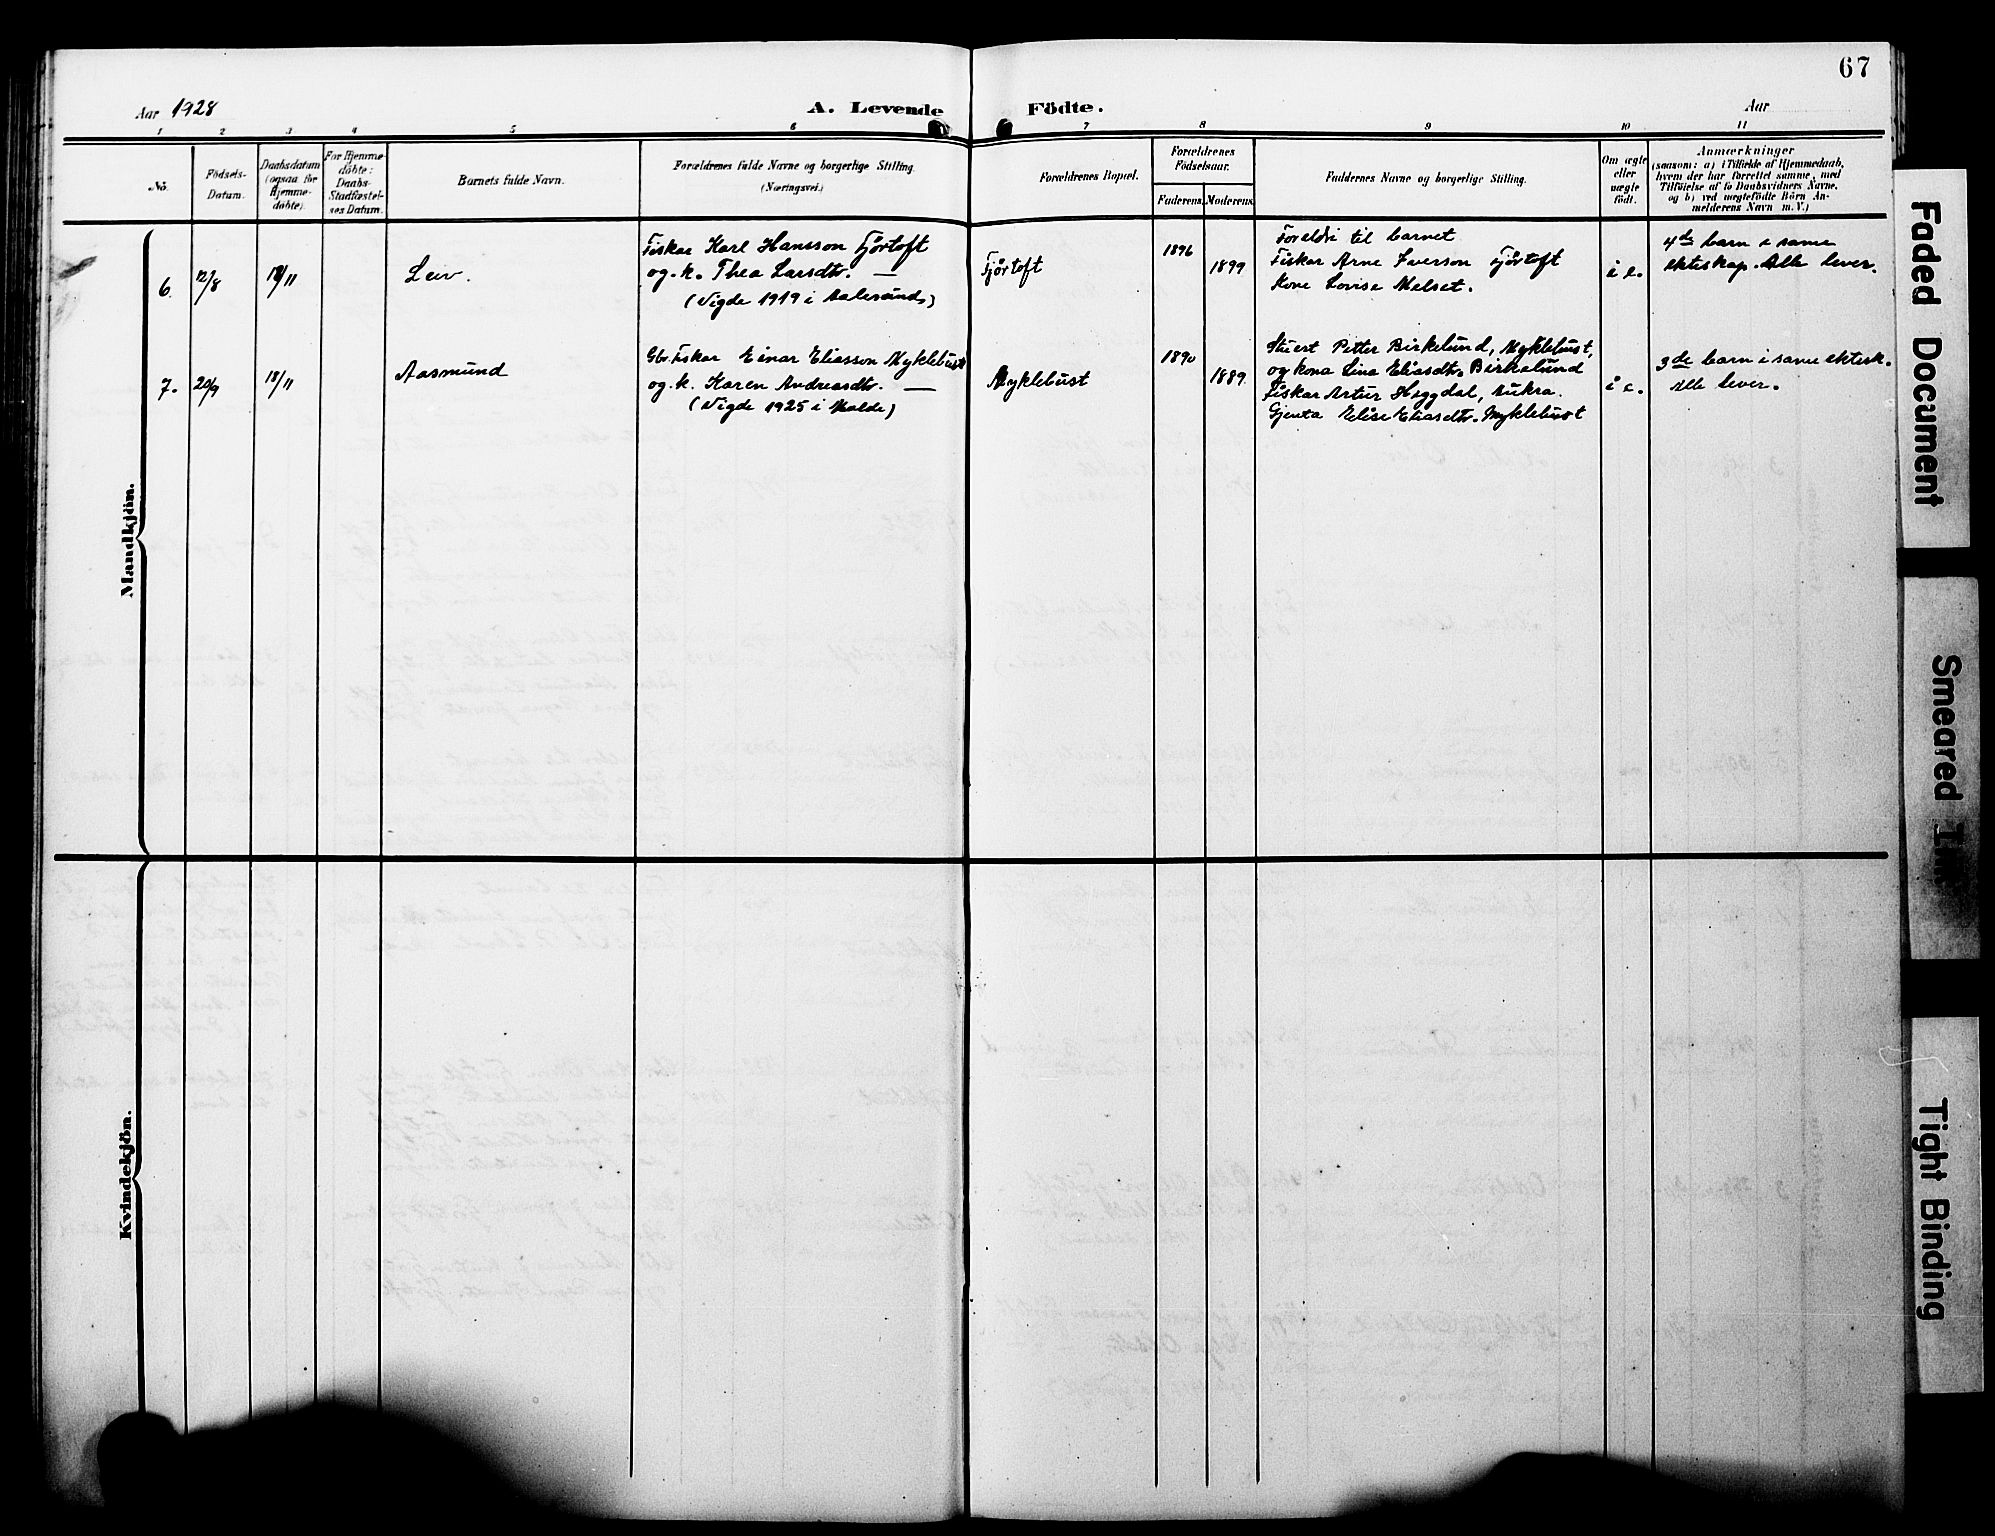 67
Aar 1928
A. Levende Födte.
Aar
1 2 3 4 5 6 7 8 9 10 11
No.
Födsels-
Datum.
Daabsdatum
(ogsaa for
Hjemme-
döbte).
For Hjemme-
döbte:
Daabs-
Stadfæstel-
ses Datum.
Barnets fulde Navn.
Forældrenes fulde Navne og borgerlige Stilling.
(Næringsvei.)
Forældrenes Bopæl.
Forældrenes
Födselsaar.
Faderens.
Moderens.
Faddernes Navne og borgerlige Stilling.
Om ægte
eller
uægte
födt.
Anmærkninger
(saasom: a) i Tilfælde af Hjemmedaab,
hvem der har forrettet samme, med
Tilföielse af to Daabsvidners Navne,
og b) ved uægtefödte Börn An-
melderens Navn m. V.)
Mandkjön.
6. 12/8 18/11
Leiv.
Fiskar Karl Hansson Fjörtoft
og k. Thea Larsdtr. —
(Vigde 1919 i Aalesund)
Fjörtoft
1896
1899
Foreldri til barnet
Fiskar Arne Iverson Fjörtoft
Kone Lovise Melset.
i e.
4de barn i same
ekteskap. Alle lever.
7. 20/9 18/11
Aasmund
Gbr. Fiskar Einar Eliasson Myklebust
og k. Karen Andreasdtr. —
(Vigde 1925 i Molde)
Myklebust
1890
1889.
Stuert Petter Birkelund, Myklebust,
og kona Lina Eliasdtr. Birkelund
Fiskar Artur Heggdal, Aukra.
Gjenta Elise Eliasdtr. Myklebust
i e.
3de barn i same ektesk.
Alle lever.
Kvindekjön.
Faded Document
Smeared Ink
Tight Binding